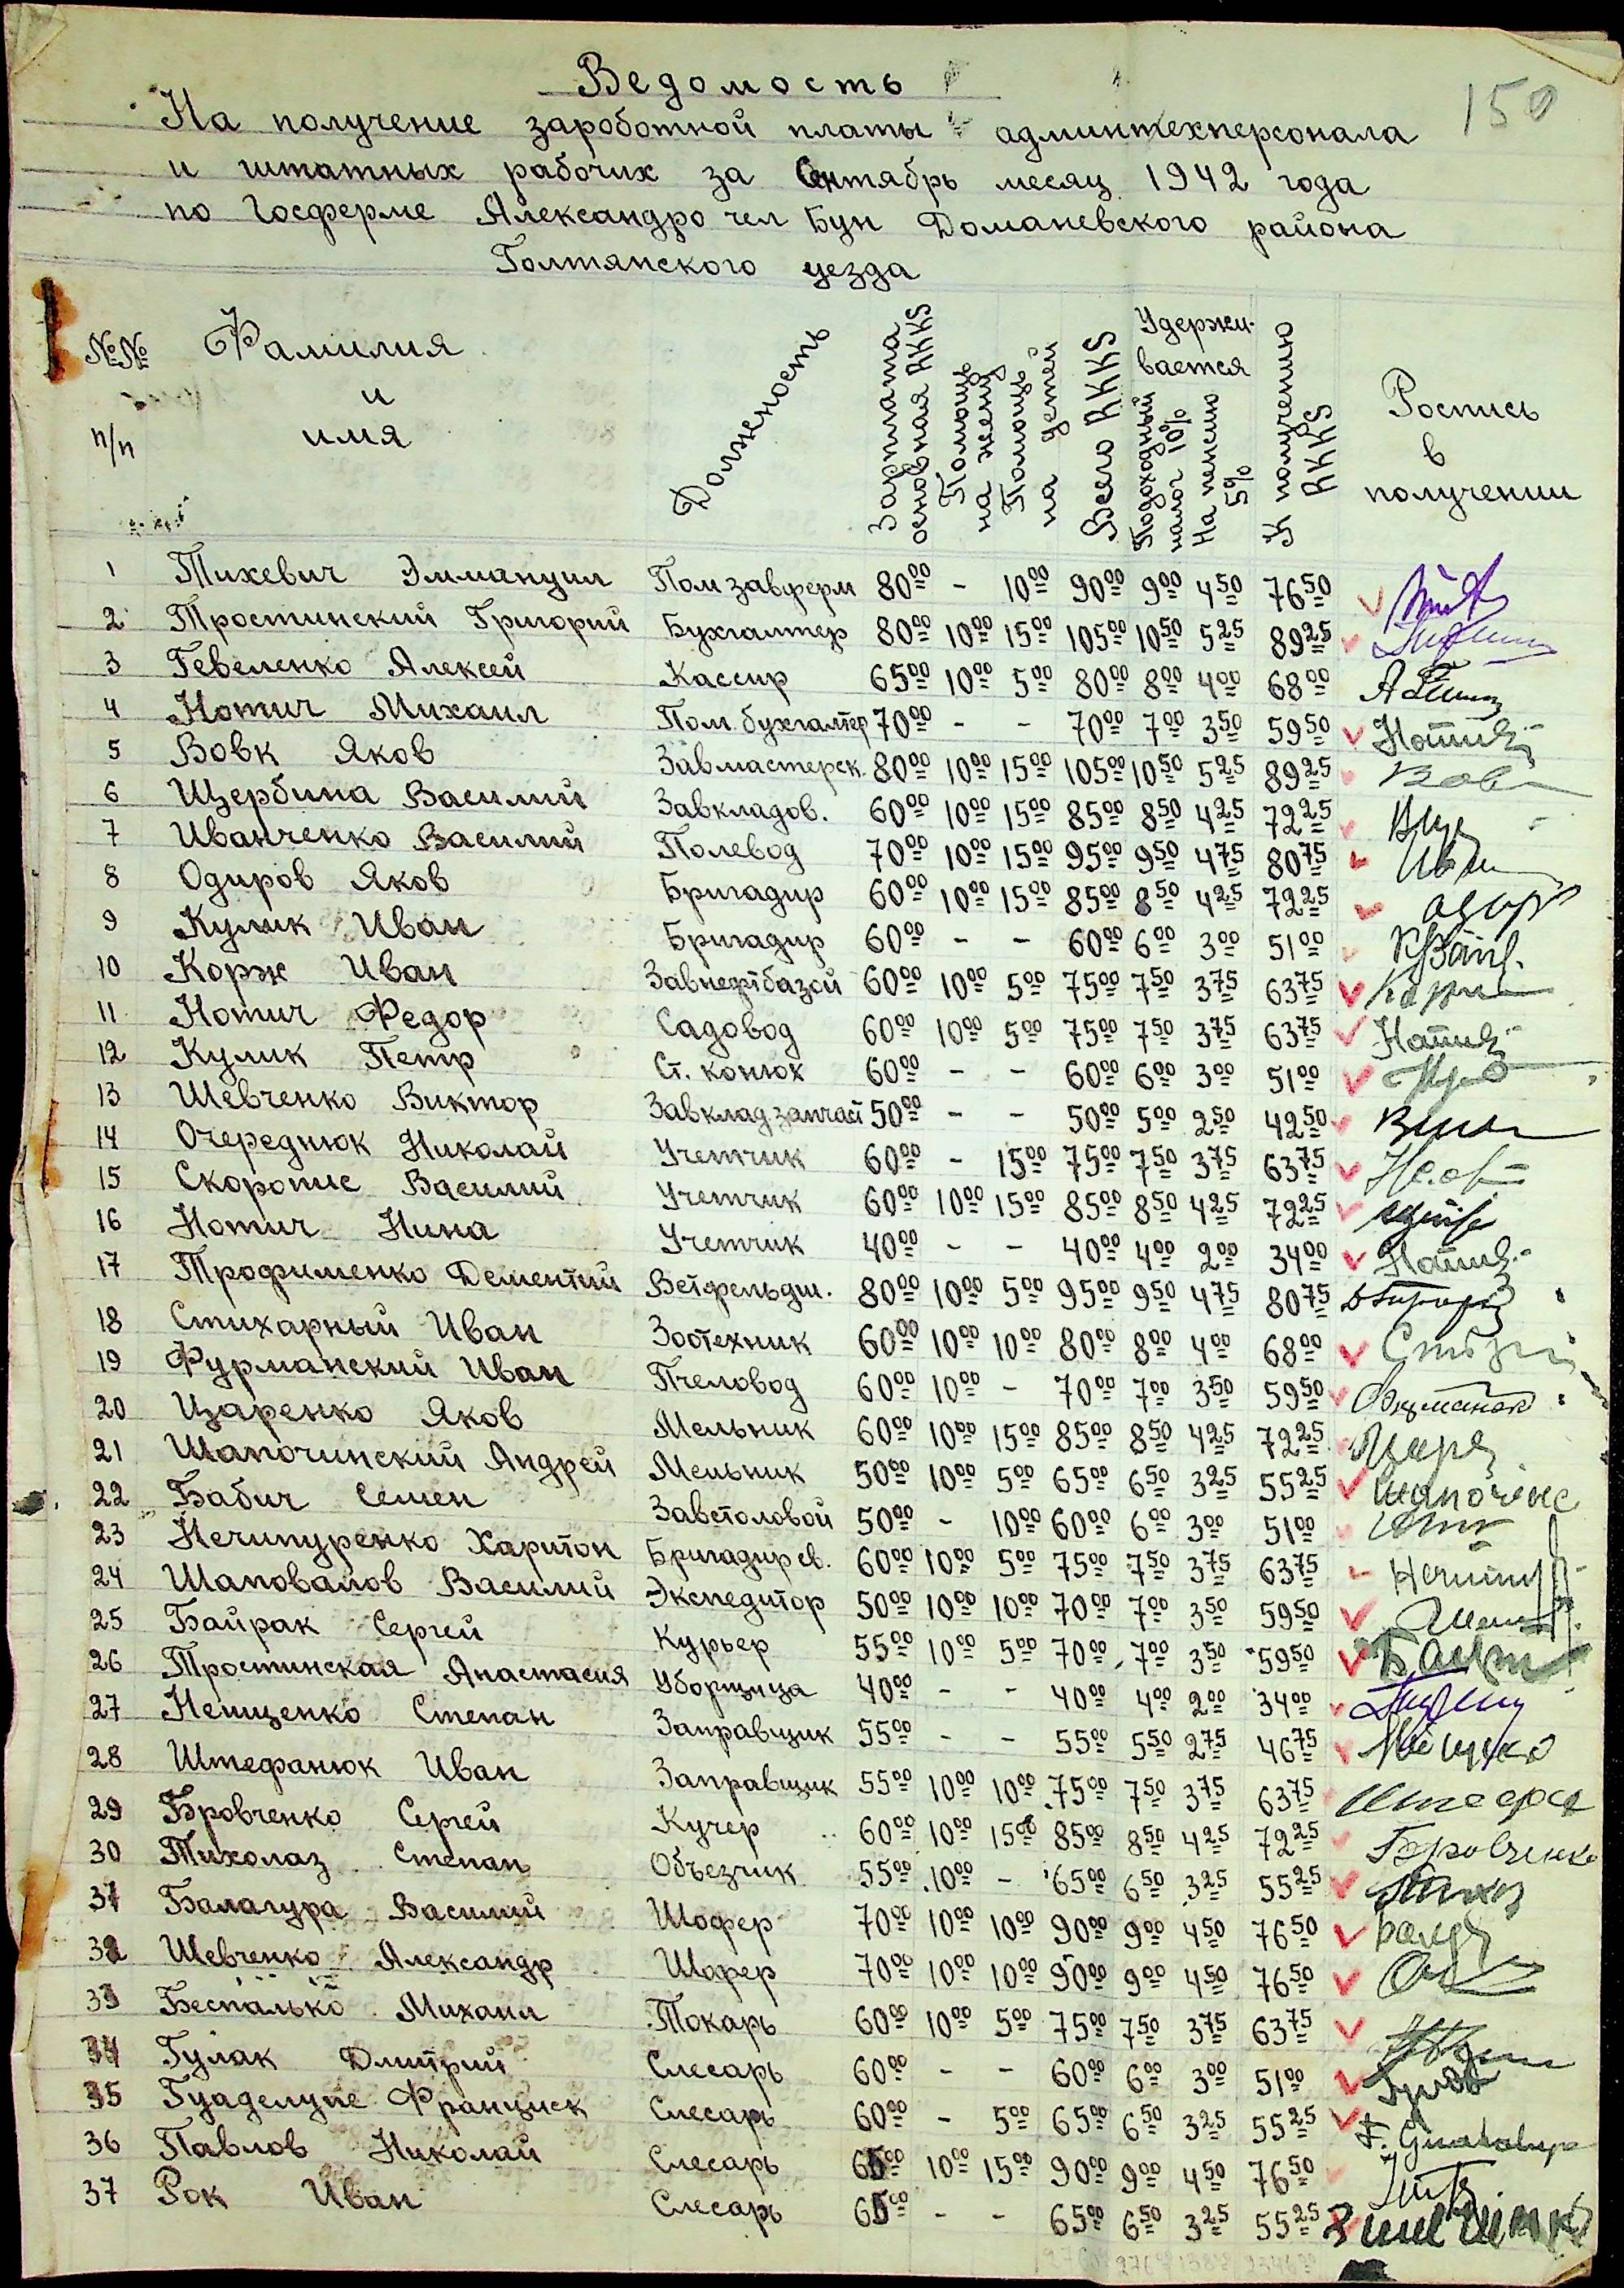 150
Ведомость
На получение зароботной платы админтехперсонала
и штатных рабочих за месяц 1942 года
по Госферме Александро чел Бун Доманевского района
Голтянского уезда
№№ п/п Фамилия и имя Должность Зарплата основная RKKS Помощь на жену Помощь на детей Всего RKKS Удерживается Подоходный налог 10% На пенсию 5% К получению RKKS Роспись в получении
1 Тихевич Эммануил Пом завферм 80 00 - 10 00 90 00 9 00 4 50 76 50
2 Тростинский Григорий Бухгалтер 80 00 10 00 15 00 105 00 10 50 5 25 89 25
3 Гевеленко Алексей Кассир 65 00 10 00 5 00 80 00 8 00 4 00 68 00
4 Нотич Михаил Пом. бухгалтер 70 00 - - 70 00 7 00 3 50 59 50
5 Вовк Яков Завмастерск. 80 00 10 00 15 00 105 00 10 50 5 25 89 25
6 Щербина Василий Завкладов. 60 00 10 00 15 00 85 00 8 50 4 25 72 25
7 Иванченко Василий Полевод 70 00 10 00 15 00 95 00 9 50 4 75 80 75
8 Одиров Яков Бригадир 60 00 10 00 15 00 85 00 8 50 4 25 72 25
9 Кулик Иван Бригадир 60 00 - - 60 00 6 00 3 00 51 00
10 Корж Иван Завнефтбазой 60 00 10 00 5 00 75 00 7 50 3 75 63 75
11 Нотич Федор Садовод 60 00 10 00 5 00 75 00 7 50 3 75 63 75
12 Кулик Петр Ст. конюх 60 00 - - 60 00 6 00 3 00 51 00
13 Шевченко Виктор Завклад запчаст 50 00 - - 50 00 5 00 2 50 42 50
14 Очереднюк Николай Учетчик 60 00 - 15 00 75 00 7 50 3 75 63 75
15 Скоропис Василий Учетчик 60 00 10 00 15 00 85 00 8 50 4 25 72 25
16 Нотич Нина Учетчик 40 00 - - 40 00 4 00 2 00 34 00
17 Трофименко Дементий Ветфельдш. 80 00 10 00 5 00 95 00 9 50 4 75 80 75
18 Стихарный Иван Зоотехник 60 00 10 00 10 00 80 00 8 00 4 00 68 00
19 Фурманский Иван Пчеловод 60 00 10 00 - 70 00 7 00 3 50 59 50
20 Царенко Яков Мельник 60 00 10 00 15 00 85 00 8 50 4 25 72 25
21 Шапочинский Андрей Мельник 50 00 10 00 5 00 65 00 6 50 3 25 55 25
22 Бабич Семен Завстоловой 50 00 - 10 00 60 00 6 00 3 00 51 00
23 Нечипуренко Харитон Бригадир св. 60 00 10 00 5 00 75 00 7 50 3 75 63 75
24 Шаповалов Василий Экспедитор 50 00 10 00 10 00 70 00 7 00 3 50 59 50
25 Байрак Сергей Курьер 55 00 10 00 5 00 70 00 7 00 3 50 59 50
26 Тростинская Анастасия Уборщица 40 00 - - 40 00 4 00 2 00 34 00
27 Неищенко Степан Заправщик 55 00 - - 55 00 5 50 2 75 46 75
28 Штефанюк Иван Заправщик 55 00 10 00 10 00 75 00 7 50 3 75 63 75
29 Бровченко Сергей Кучер 60 00 10 00 15 00 85 00 8 50 4 25 72 25 Бровченко
30 Тихолаз Степан Объезчик 55 00 10 00 - 65 00 6 50 3 25 55 25
31 Балагура Василий Шофер 70 00 10 00 10 00 90 00 9 00 4 50 76 50
32 Шевченко Александр Шофер 70 00 10 00 10 00 90 00 9 00 4 50 76 50
33 Беспалько Михаил Токарь 60 00 10 00 5 00 75 00 7 50 3 75 63 75
34 Гулак Дмитрий Слесарь 60 00 - - 60 00 6 00 3 00 51 00
35 Гуаделупе Франциск Слесарь 60 00 - 5 00 65 00 6 50 3 25 55 25 F. Guadalupe
36 Павлов Николай Слесарь 65 00 10 00 15 00 90 00 9 00 4 50 76 50
37 Рок Иван Слесарь 65 00 - - 65 00 6 50 3 25 55 25